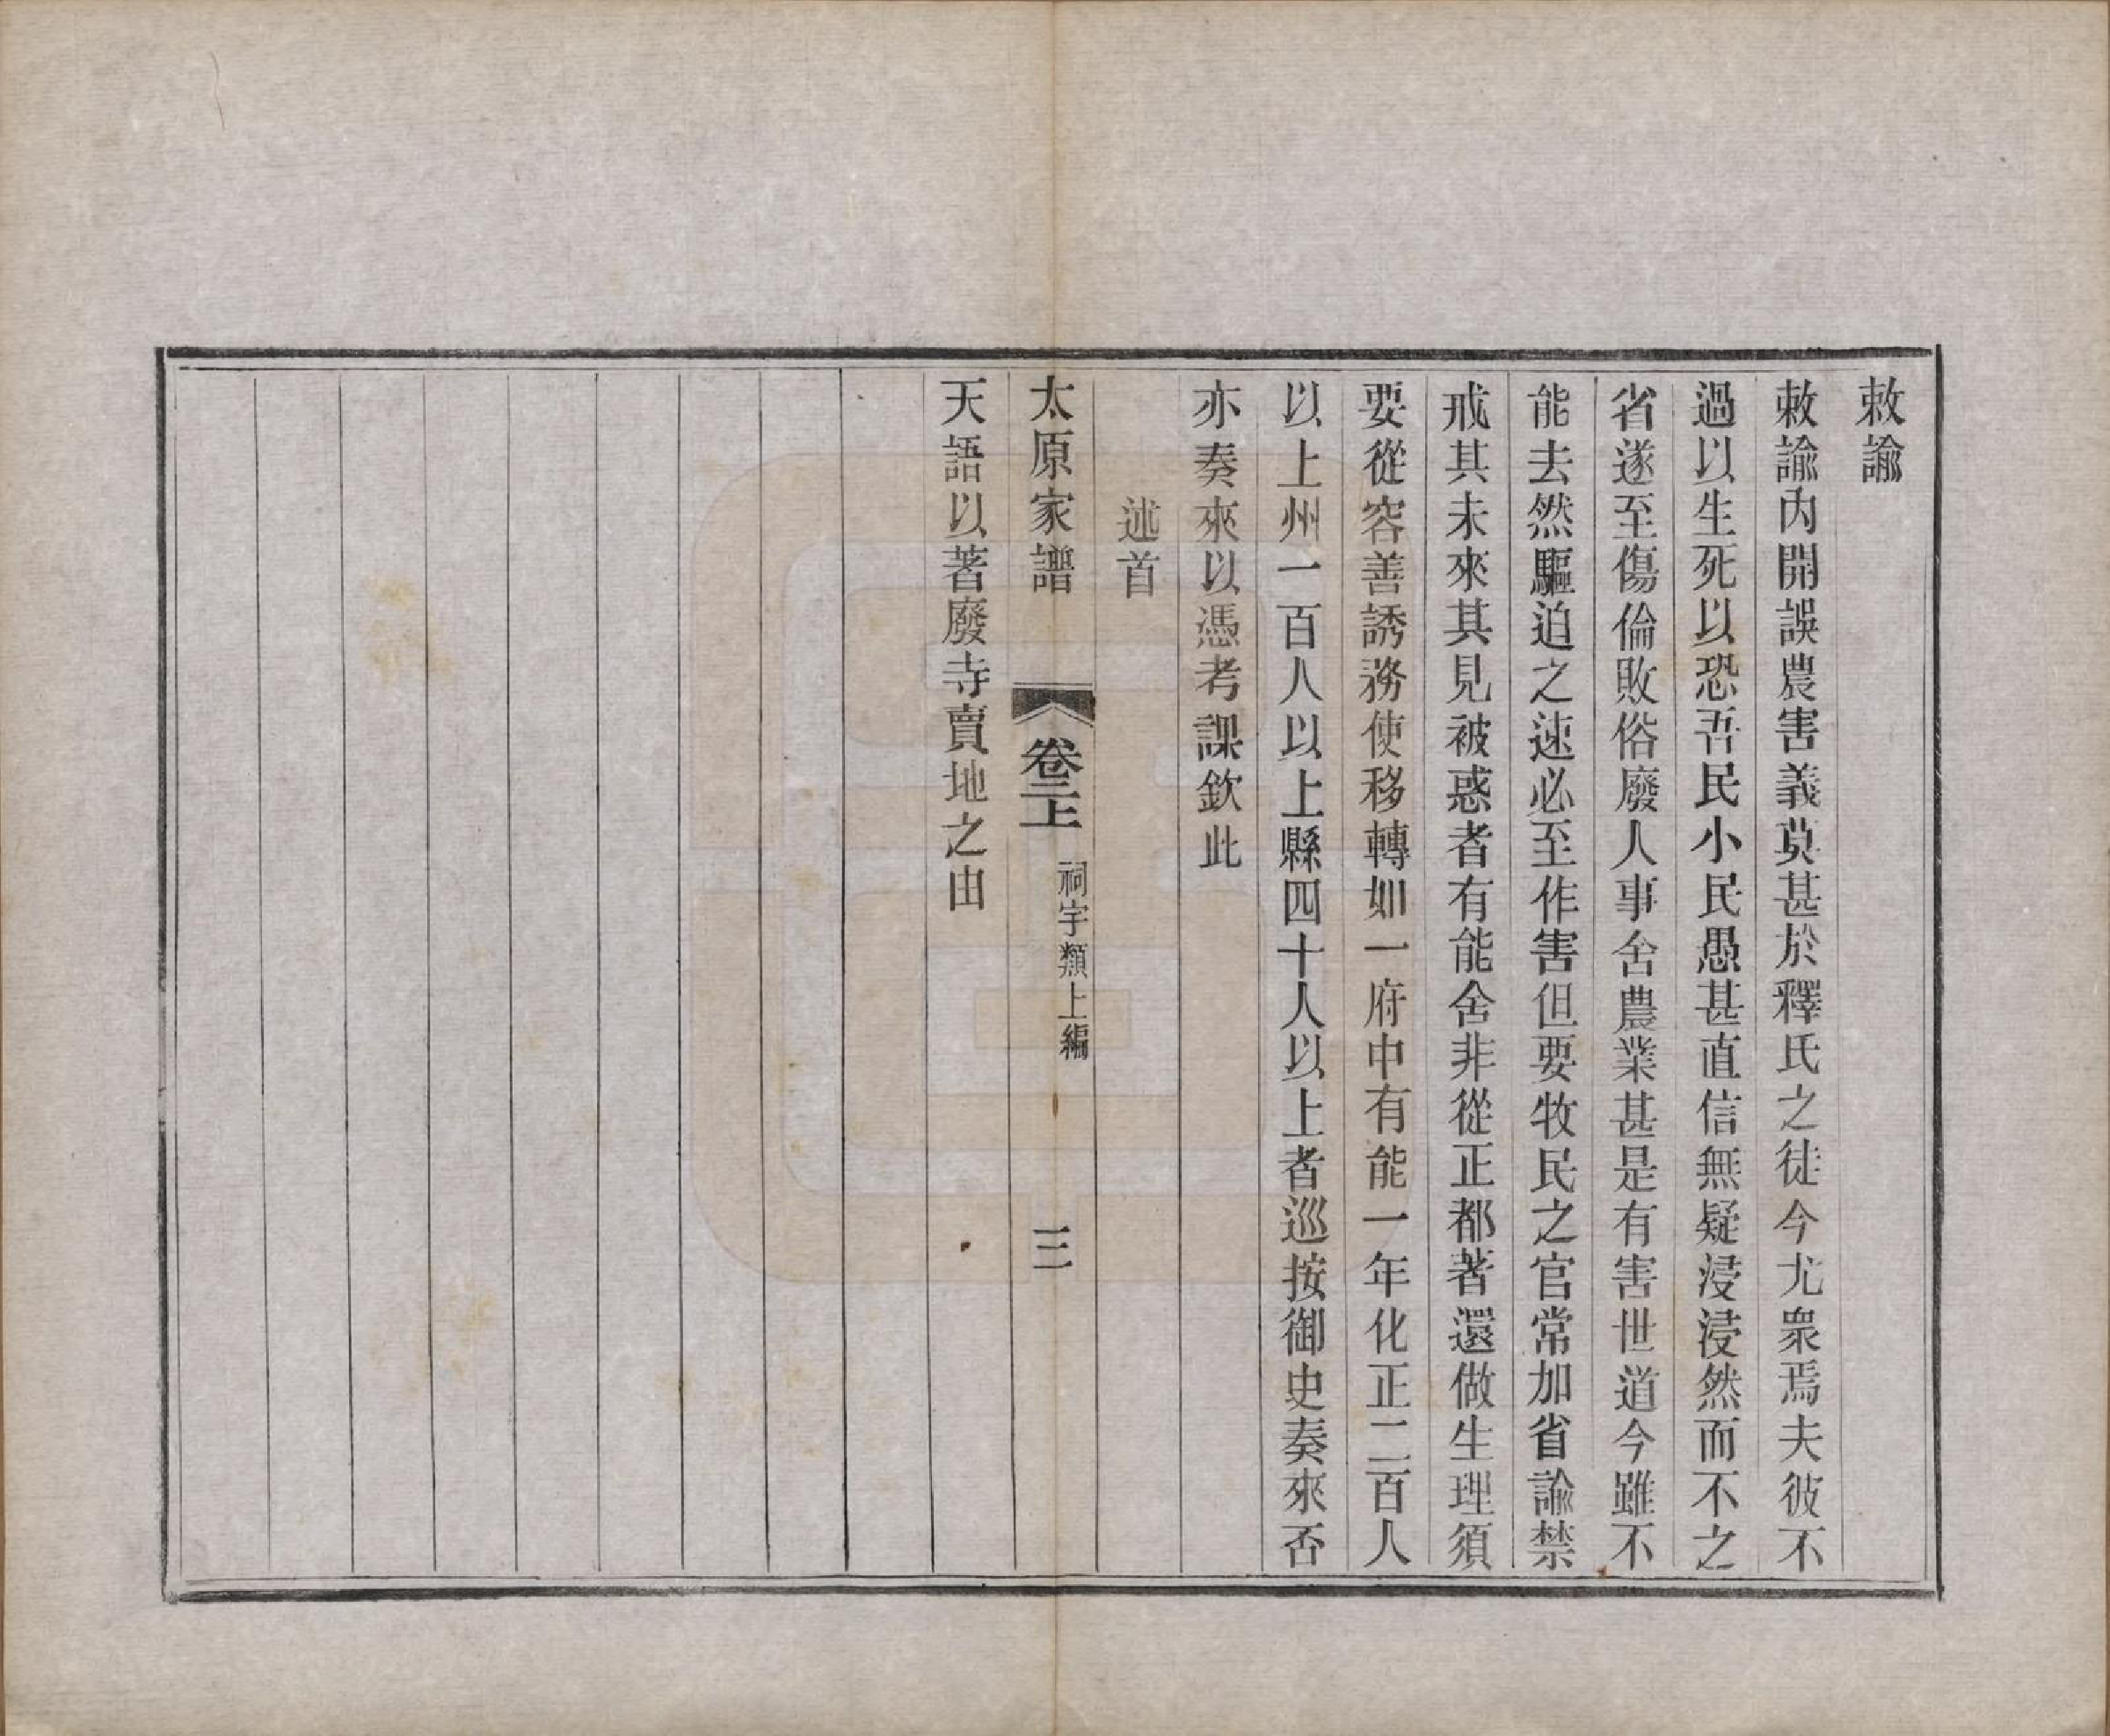 敕諭
敕諭內開誤農害義莫甚於釋氏之徒今尤衆焉夫彼不
過以生死以恐吾民小民愚甚直信無疑浸浸然而不之
省遂至傷倫敗俗廢人事舍農業甚是有害世道今雖不
能去然驅迫之速必至作害但要牧民之官常加省諭禁
戒其未來其見被惑者有能舍非從正都著還做生理須
要從容善誘務使移轉如一府中有能一年化正二百人
以上州一百人以上縣四十人以上者巡按御史奏來否
亦奏來以憑考課欽此
述首
太原家譜 卷二上 祠宇類上編 三
天語以著廢寺賣地之由